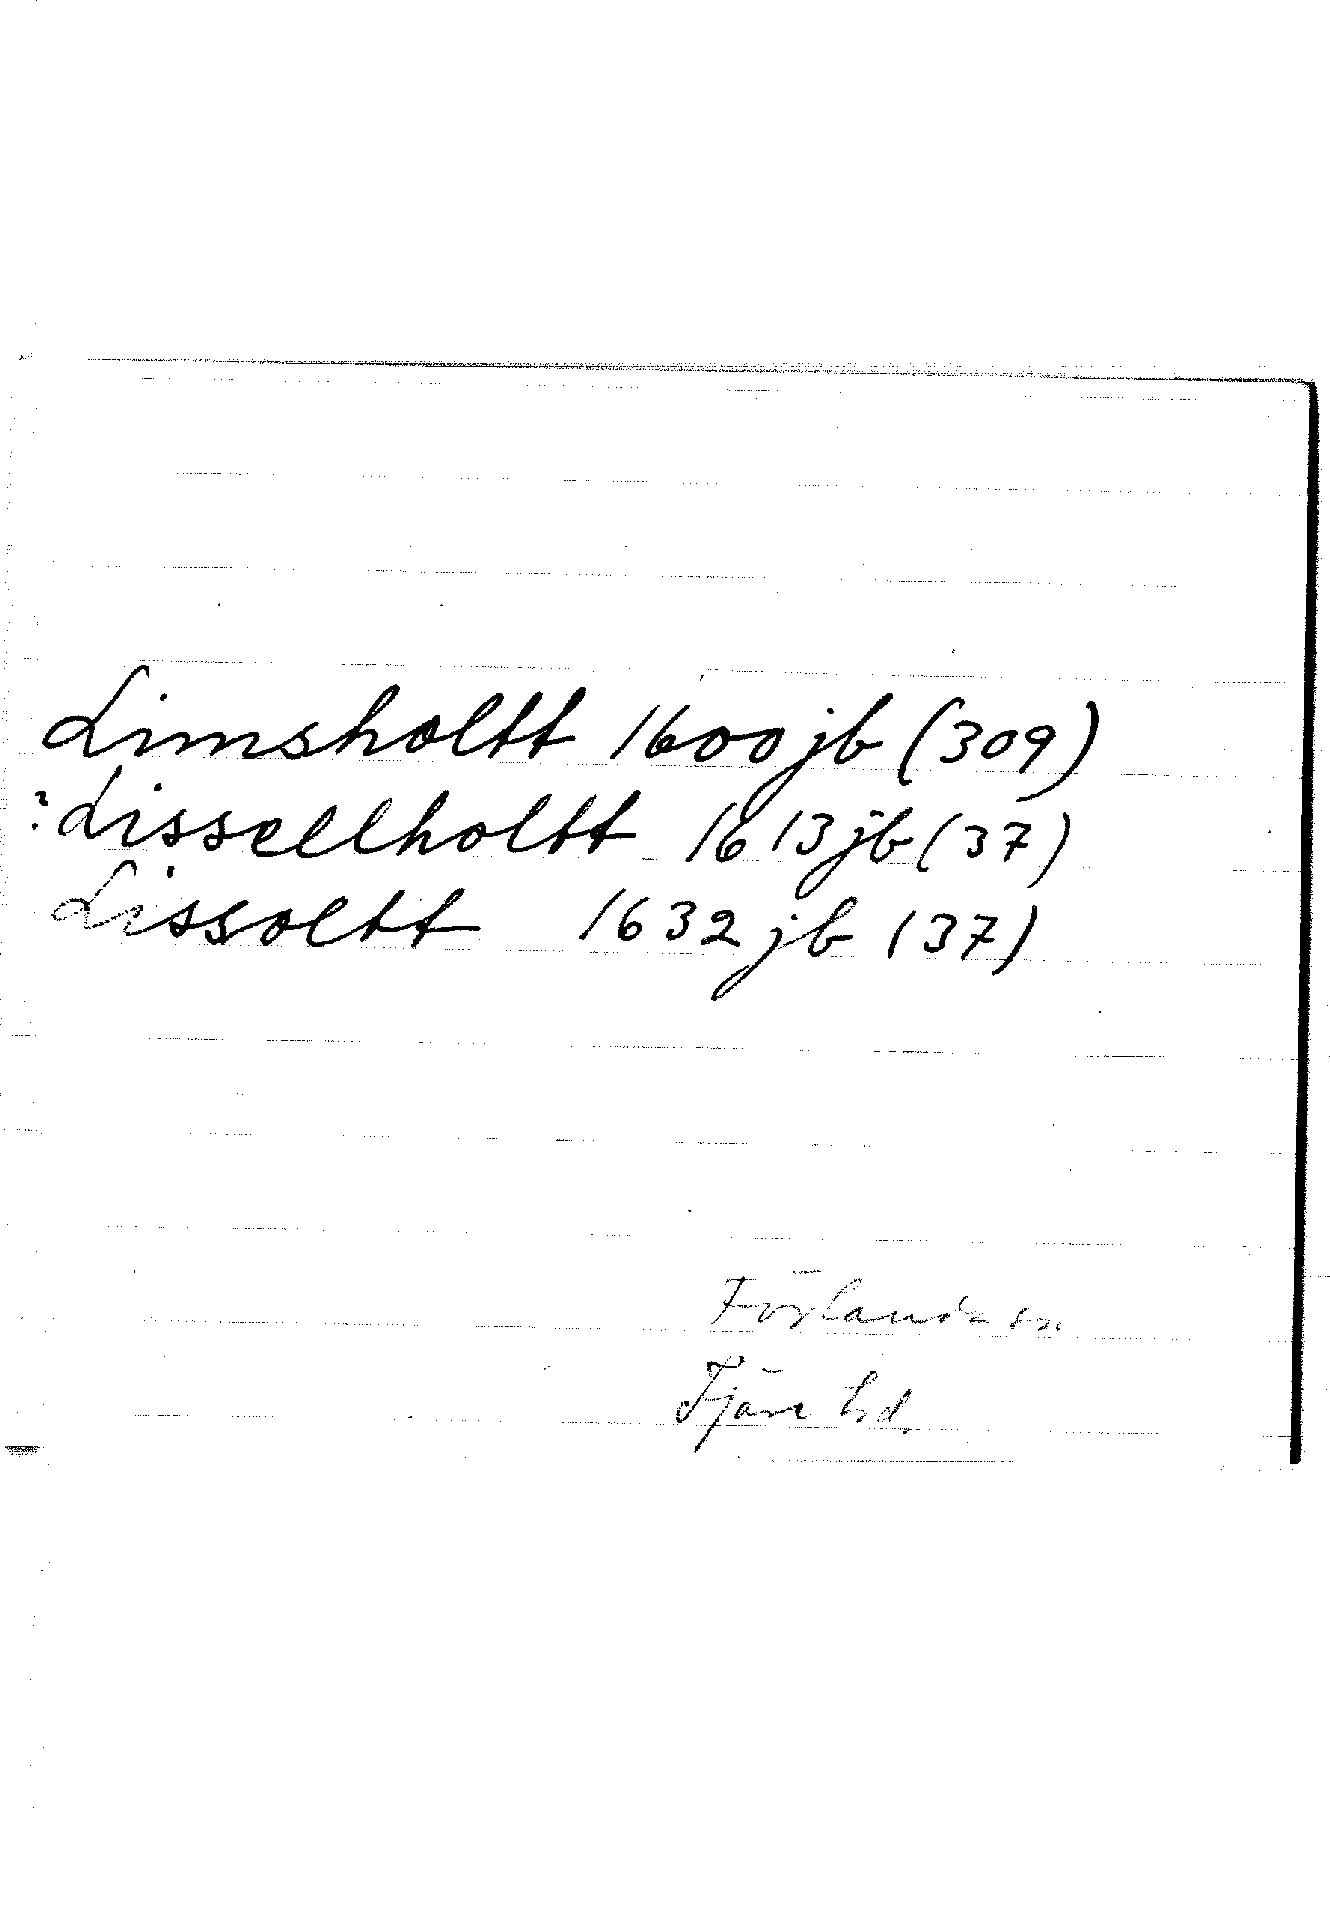 Limsholtt 1600 jb (309)
? Lissellholtt 1613 jb (37)
Lissoltt 1632 jb (37)
Förlanda sn.
Fjäre hd.